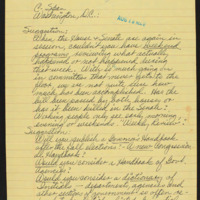 C-Span
Washington, D.C.:
Suggestion:
When the House & Senate are again in
session, couldn't you have weekend
programs reviewing what actually
happened or not happened during
that week. Bills so much going on
in committee that never gets to the
floor and we not quite sure how
much has been accomplished. Has the
bill been passed by both houses or
has it been killed in the Senate?
Working people only see early morning
evening or weekends "Weekly Review".
Suggestion:
Will you publish a Governor's Handbook
after the fall elections? A new Congression-
al Handbook?
Would you consider a Handbook of Govt.
Agencies?
Would you consider a dictionary of
Initials — departments, agencies and
other sections of government so often re-